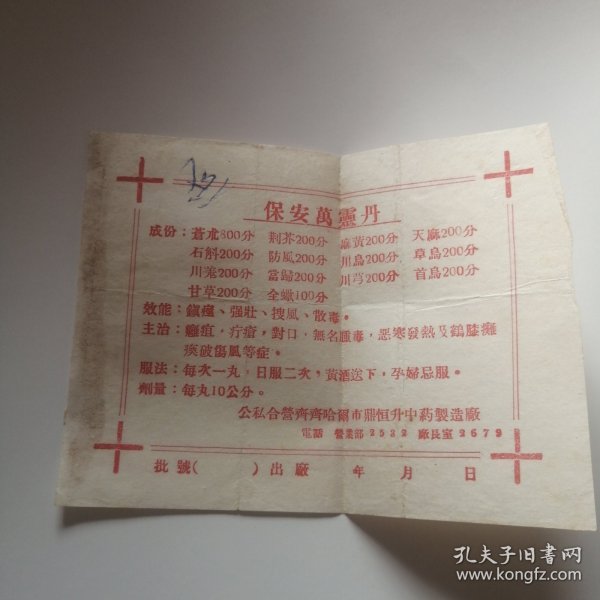 保安萬靈丹
成份：蒼朮800分 荆芥200分 麻黃200分 天麻200分
石斛200分 防風200分 川烏200分 草烏200分
川羗200分 當歸200分 川芎200分 首烏200分
甘草200分 全蠍100分
效能：鎮痙、强壯、搜風、散毒。
主治：癰疽，疔瘡，對口，無名腫毒，恶寒發熱及鶴膝癱
瘓破傷風等症。
服法：每次一丸，日服二次，黃酒送下，孕婦忌服。
劑量：每丸10公分。
公私合營齊齊哈爾市鼎恒升中葯製造廠
電話 營業部2532 廠長室2679
批號( )出廠 年 月 日
孔夫子旧書网
www.kongfz.com